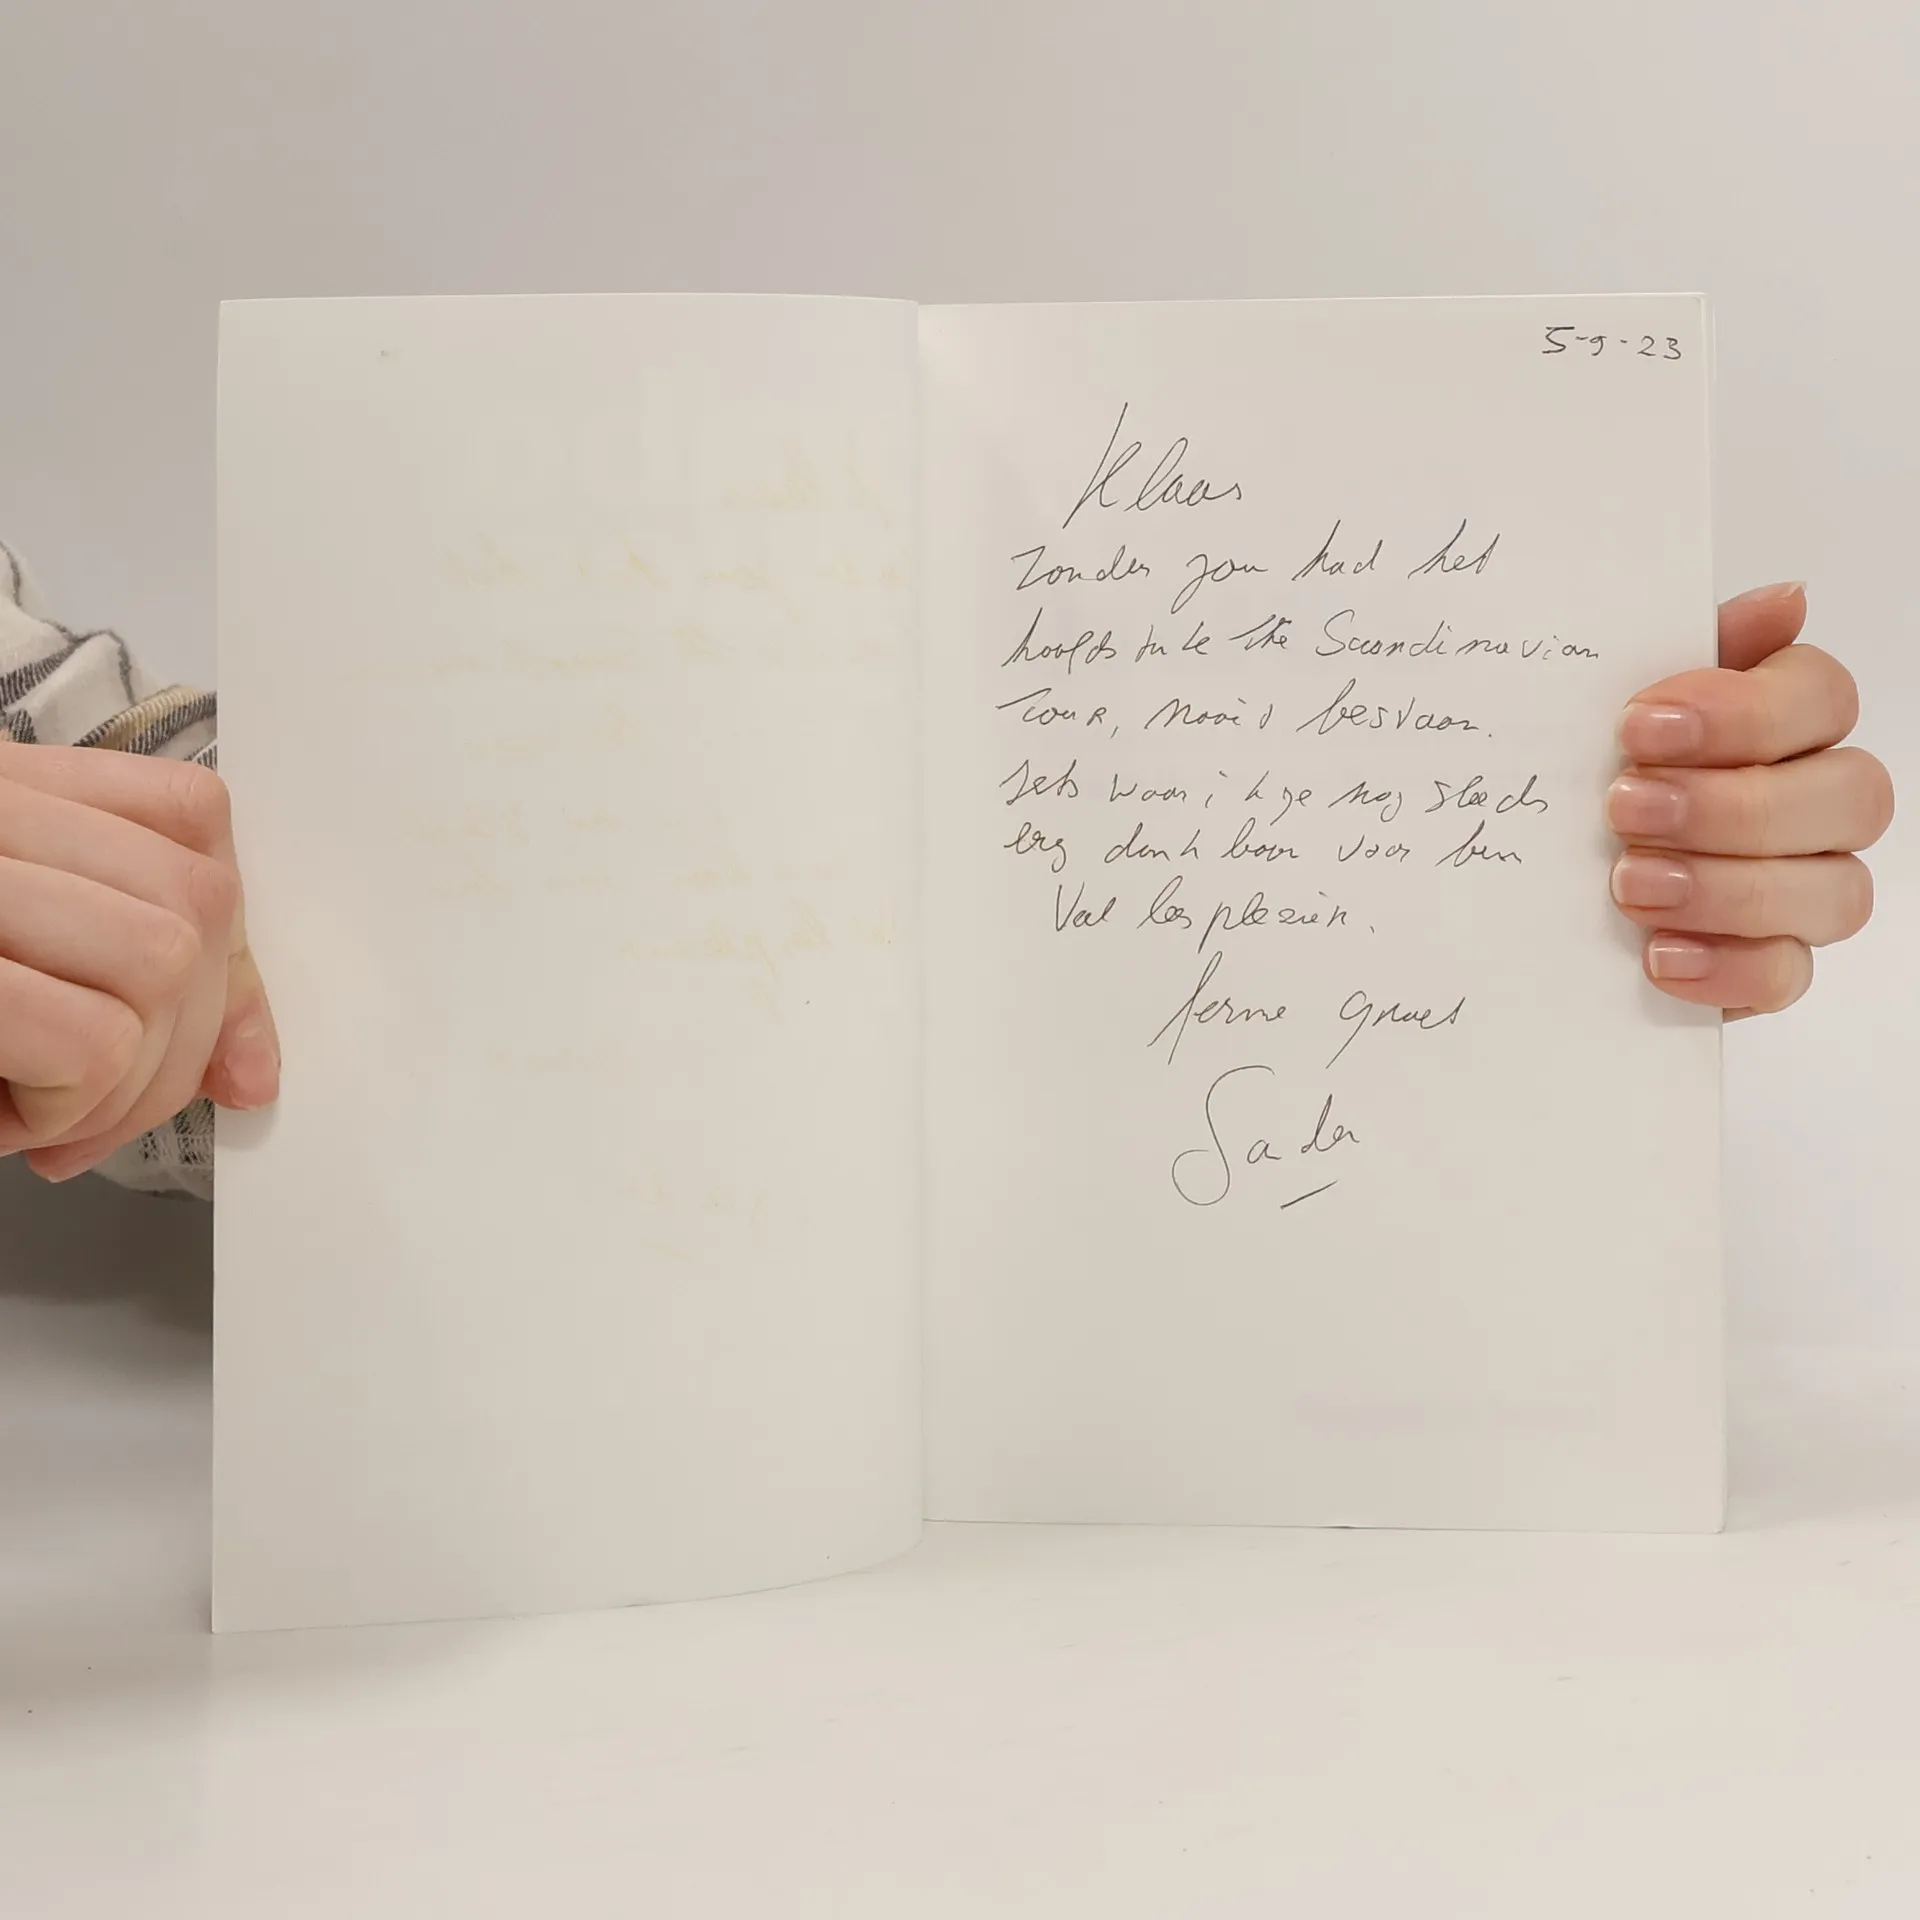 5-9-23
Klaas
Zonder jou had het
hoofdstuk the Scandinavian
Tour, nooit bestaan.
Iets waar ik je nog steeds
erg dankbaar voor ben
Veel leesplezier.
ferme groet
Sander